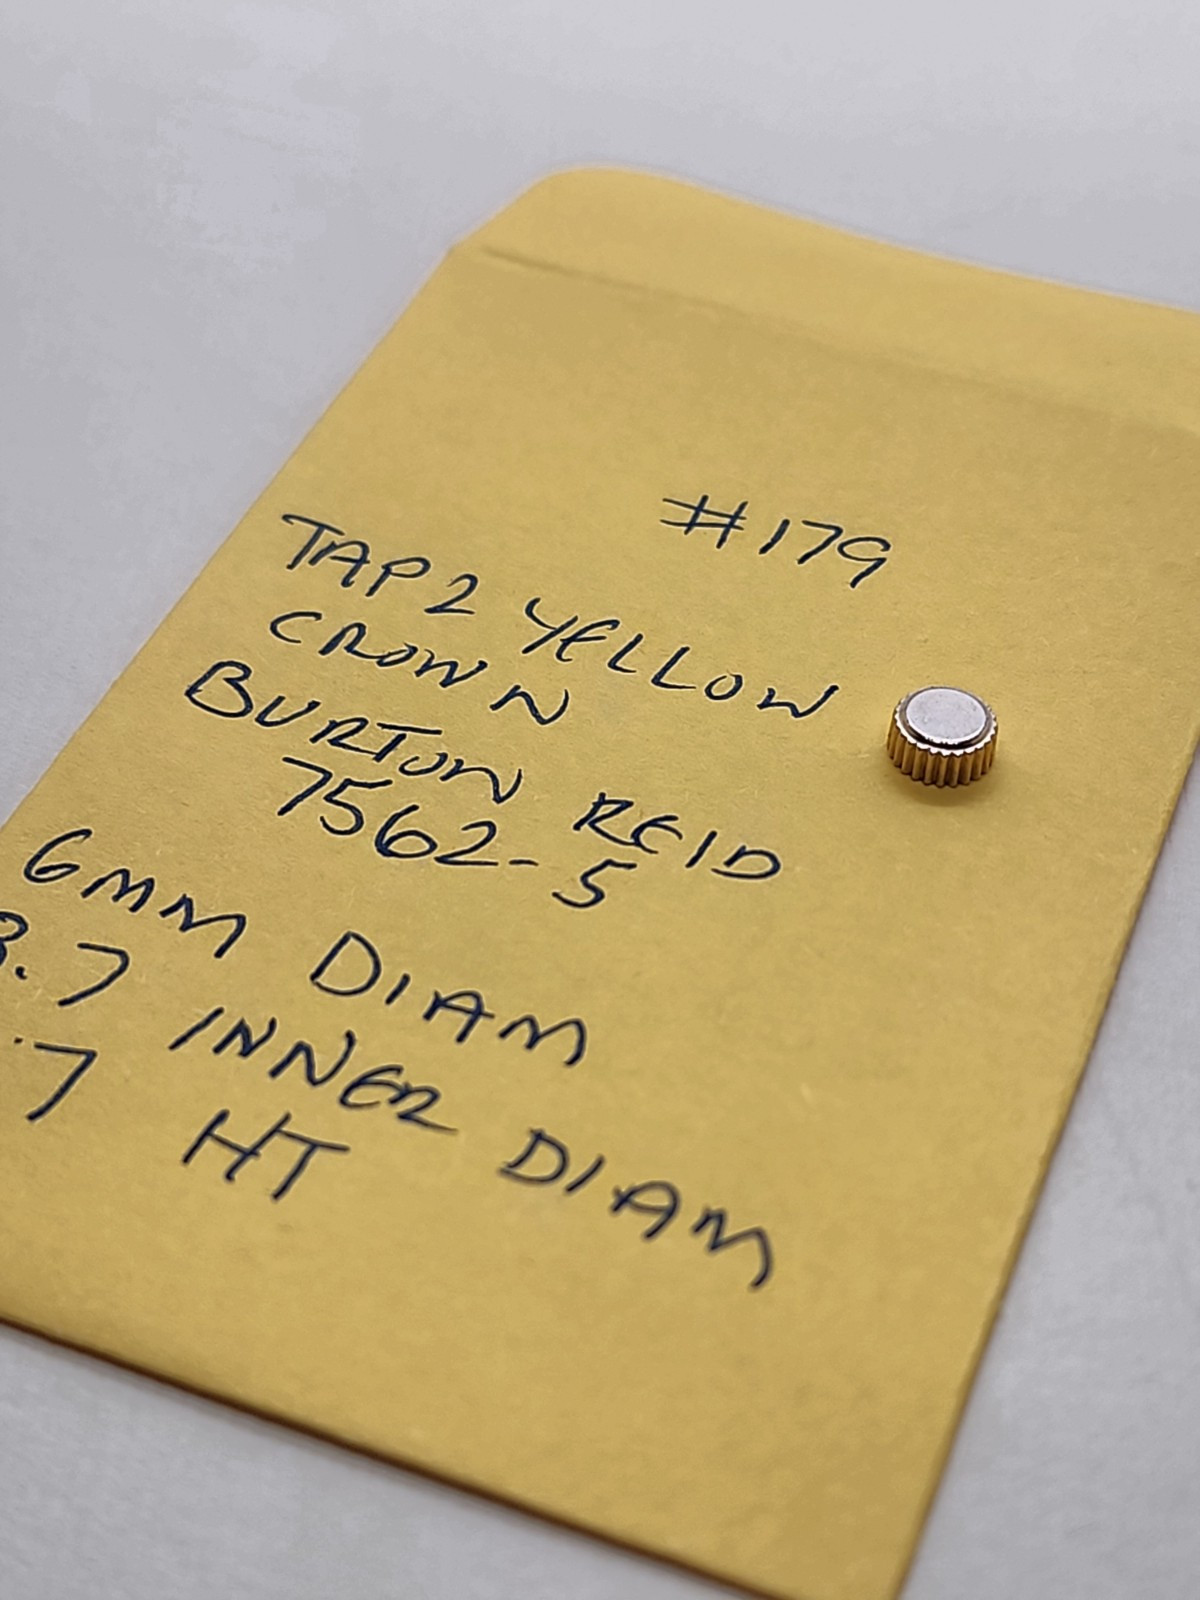 #179
TAP 2 YELLOW
CROWN
BURTON REID
7562-5
6MM DIAM
3.7 INNER DIAM
.7 HT